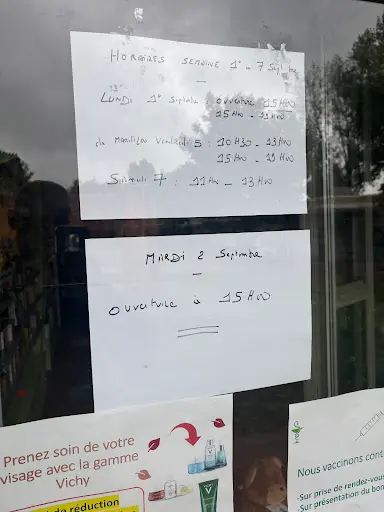 HORAIRES SEMAINE 1° au 7 Sept
LUNDI 1° Septembre : ouverture 15H00
15H00 - 19H00
du Mardi au Vendredi 5 : 10H30 - 13H00
15H00 - 19H00
Samedi 7 : 11H00 - 13H00
MARDI 2 Septembre
ouverture à 15H00
Prenez soin de votre
visage avec la gamme
Vichy
de réduction
Nous vaccinons cont
-Sur prise de rendez-vous
-Sur présentation du bon